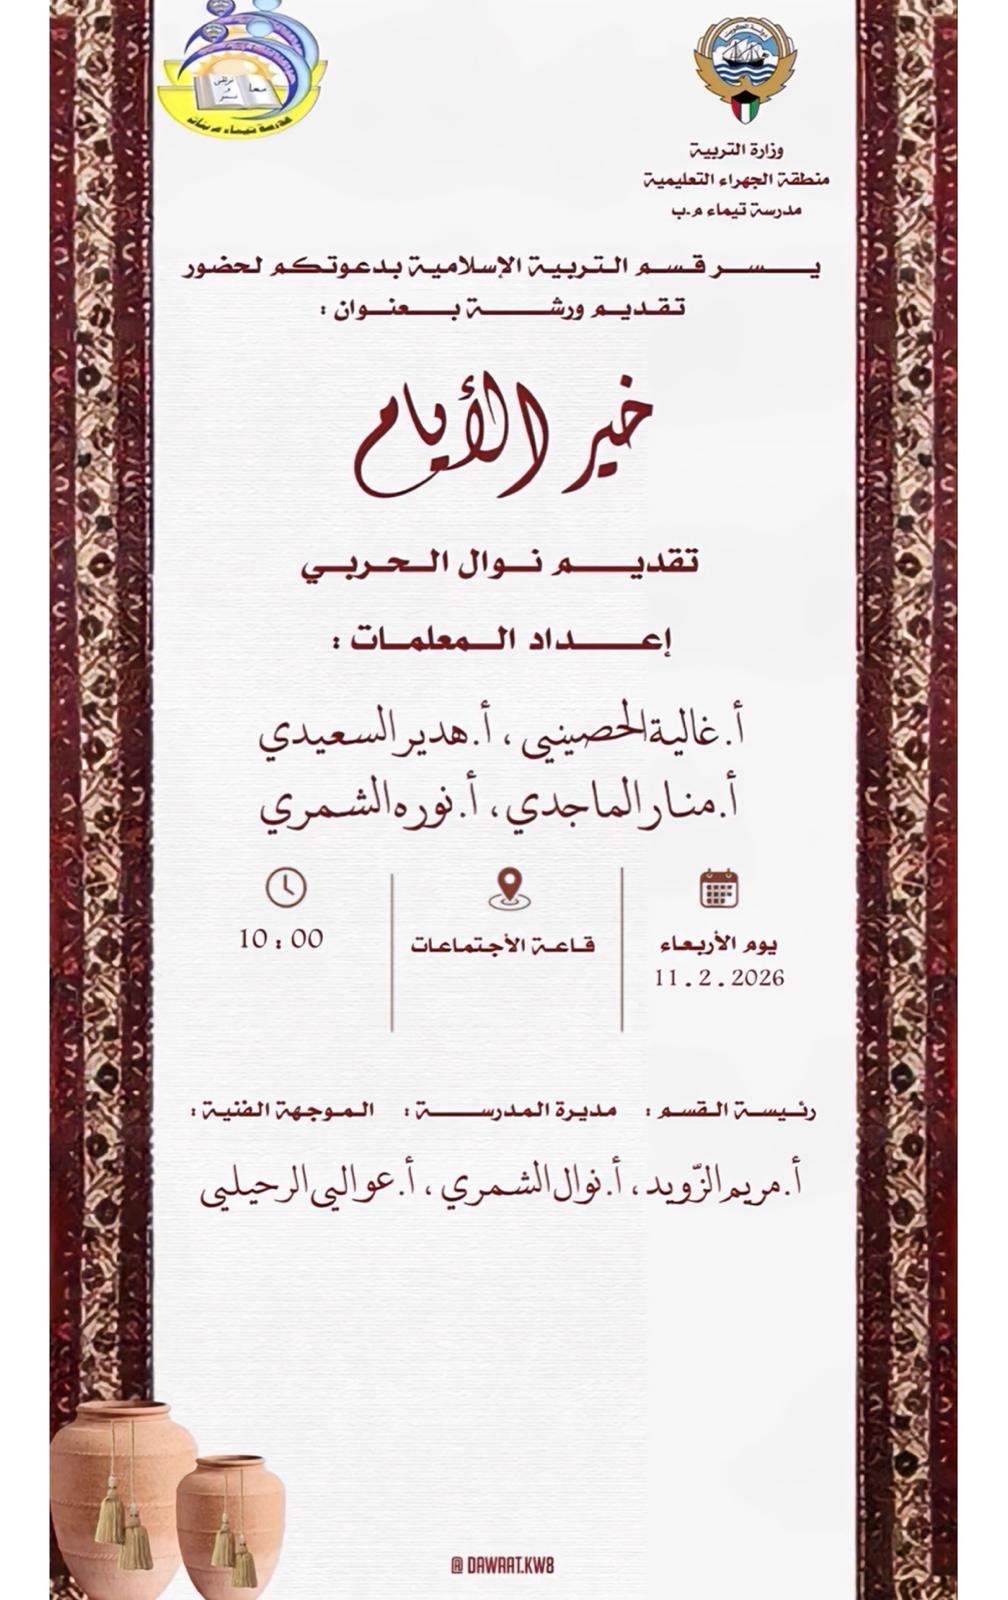 دولة الكويت
وزارة التربية
منطقة الجهراء التعليمية
مدرسة تيماء م.ب
معا
نرتقي
و
نستمر
مدرسة تيماء م بنات
يسر قسم التربية الإسلامية بدعوتكم لحضور
تقديم ورشة بعنوان :
خير الأيام
تقديم نوال الحربي
إعداد المعلمات :
أ. غالية الحصيني ، أ. هدير السعيدي
أ. منار الماجدي ، أ. نوره الشمري
يوم الأربعاء
11 . 2 . 2026
قاعة الأجتماعات
10 : 00
رئيسة القسم : مديرة المدرسة : الموجهة الفنية :
أ. مريم الزّويد ، أ. نوال الشمري ، أ. عوالي الرحيلي
@ DAWAAT.KW8